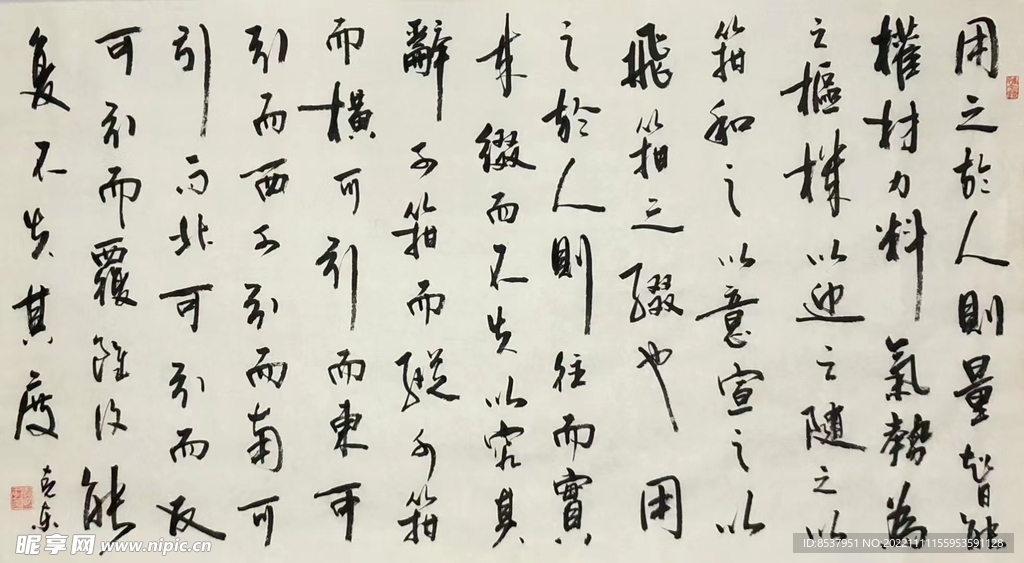 用之於人則量智能
權材力料氣勢為
之樞機以迎之隨之以
箝和之以意宣之以
飛箝之綴也用
之於人則往而實
來綴而不失以究其
辭可箝而縱可箝
而橫可引而東可
引而西可引而南可
引而北可引而反
可引而覆雖復能
复不失其度
克东
昵享网 www.nipic.cn
ID:8537951 NO:20221111155953591128